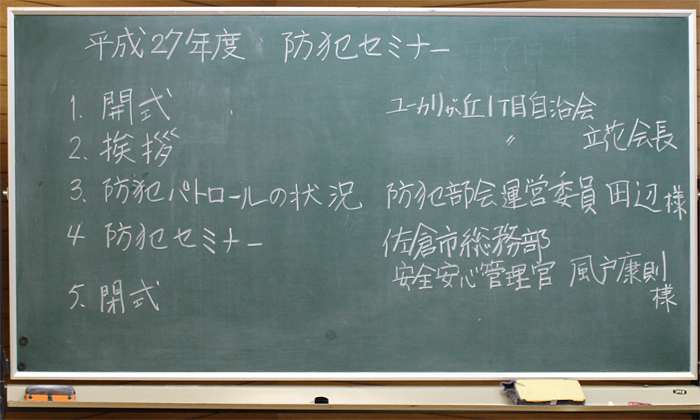 平成27年度 防犯セミナー
1. 開式 ユーカリが丘1丁目自治会
2. 挨拶 〃 立花会長
3. 防犯パトロールの状況 防犯部会運営委員 田辺様
4 防犯セミナー 佐倉市総務部
安全安心管理官 風戸康則
様
5. 閉式